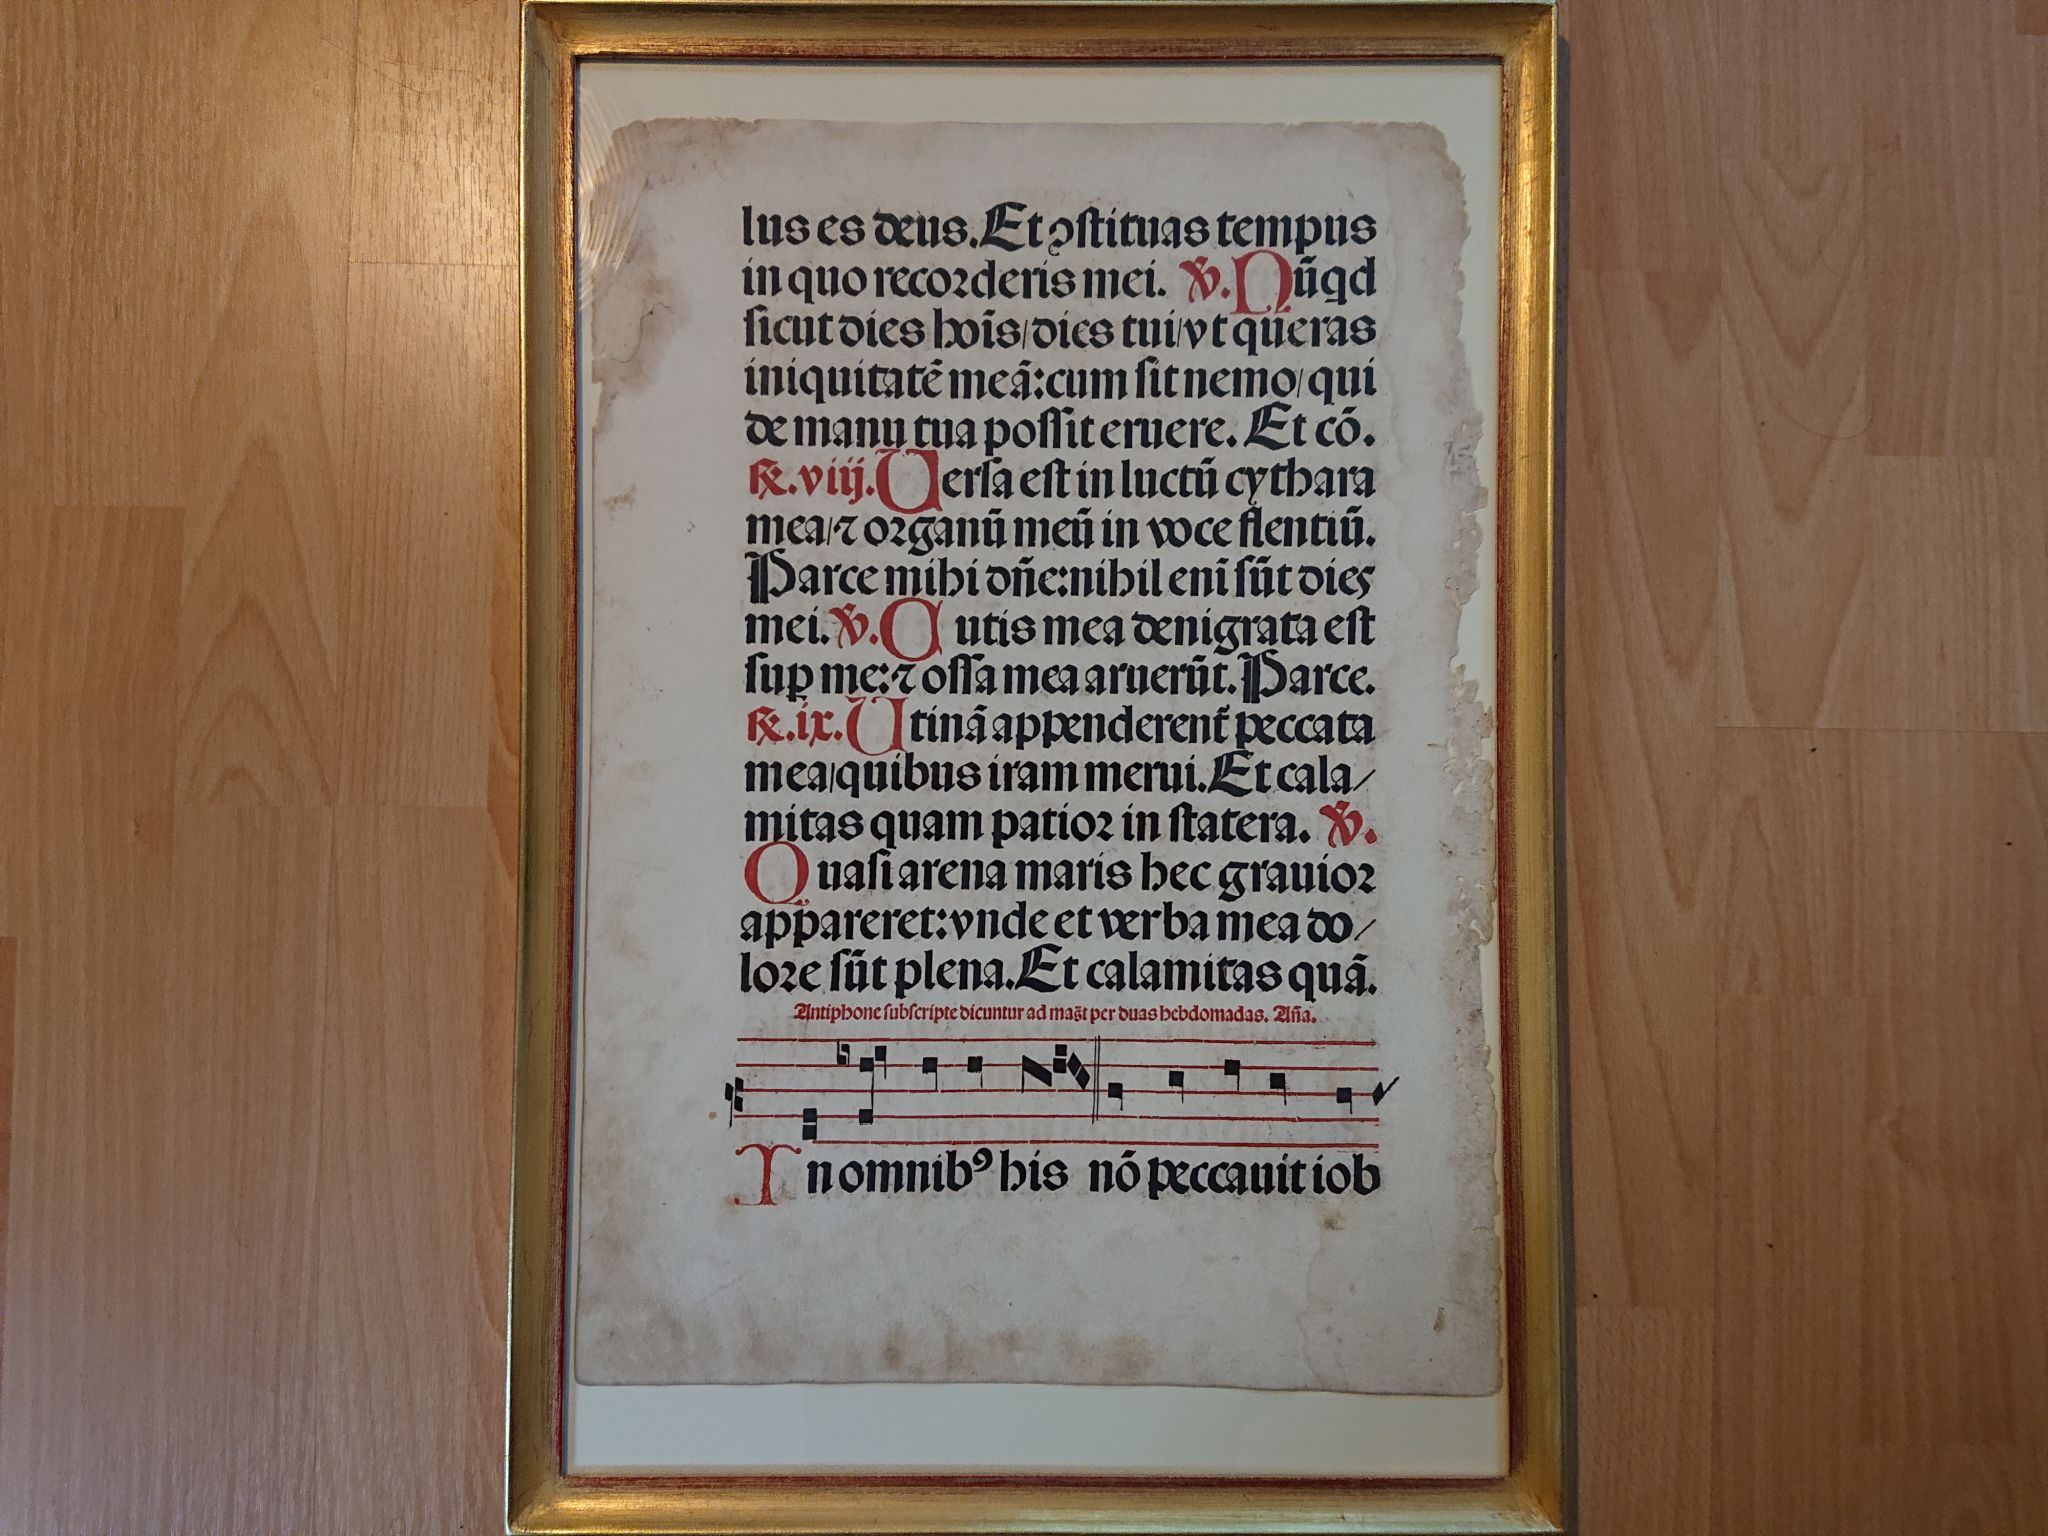 lus es deus. Et ꝯstituas tempus
in quo recorderis mei. ℣. Nũqd
sicut dies hoĩs/dies tui/vt queras
iniquitatẽ meã:cum sit nemo/qui
de manu tua possit eruere. Et cõ.
℟. viij. Uersa est in luctũ cythara
mea/⁊ organũ meũ in voce flentiũ.
Parce mihi dñe:nihil enĩ sũt dies
mei. ℣. Cutis mea denigrata est
suꝑ me:⁊ ossa mea aruerũt. Parce.
℟. ix. Utinã appenderent̃ peccata
mea/quibus iram merui. Et cala/
mitas quam patior in statera. ℣.
Quasi arena maris hec grauior
appareret:vnde et verba mea do/
lore sũt plena. Et calamitas quã.
Antiphone subscripte dicuntur ad mag̃t per duas hebdomadas. Aña.
In omnibꝰ his nõ peccauit iob